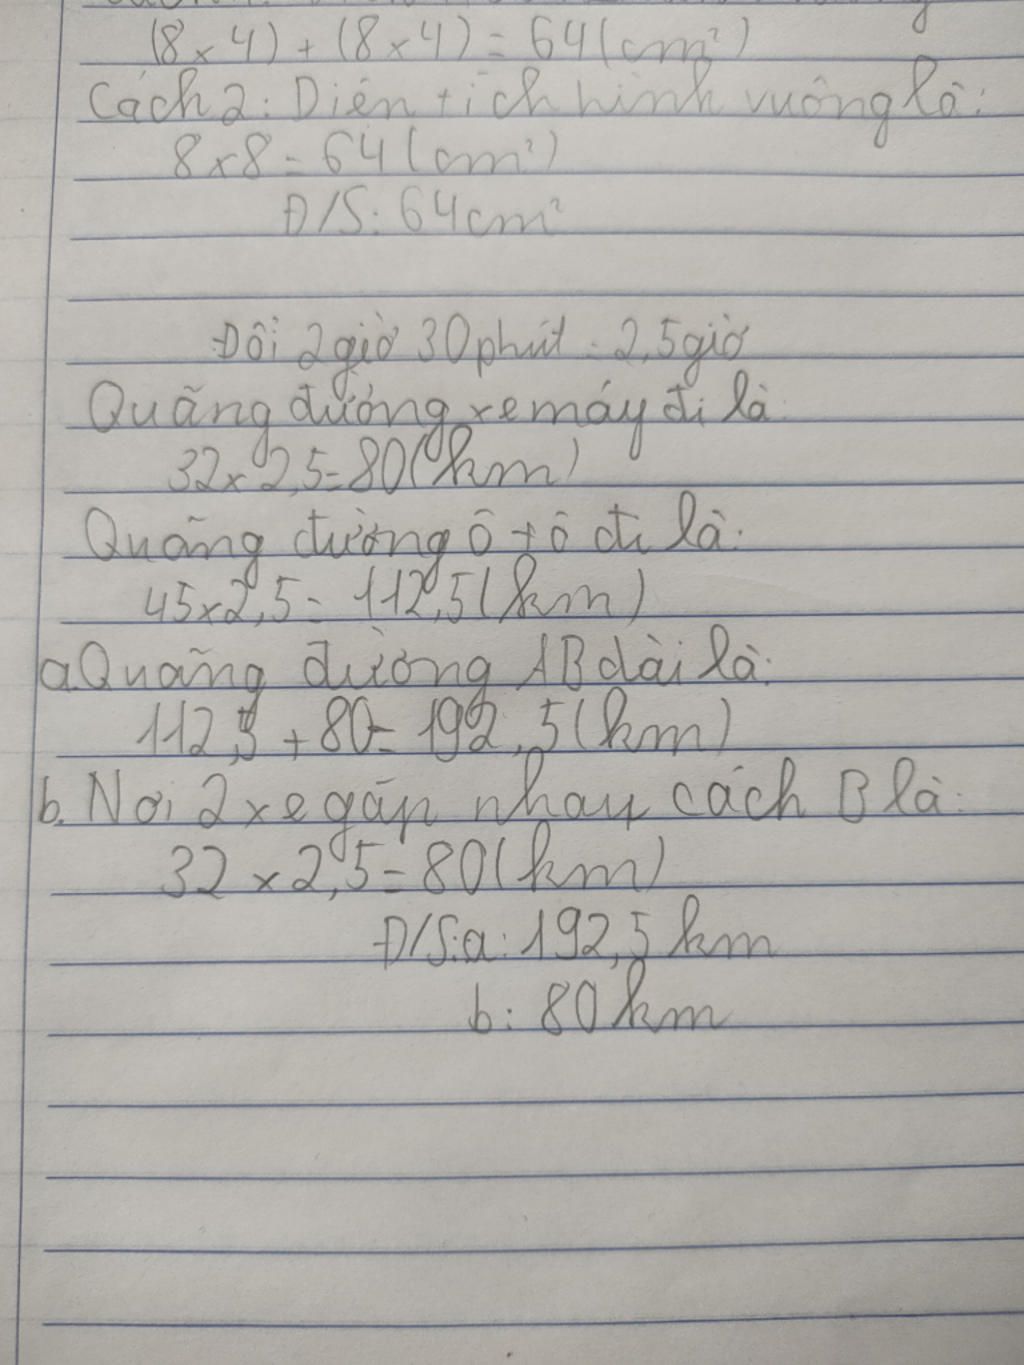 (8 x 4) + (8 x 4) = 64 (cm²)
Cách 2: Diện tích hình vuông là:
8 x 8 = 64 (cm²)
Đ/S: 64 cm²
Đổi 2 giờ 30 phút = 2,5 giờ
Quãng đường xe máy đi là
32 x 2,5 = 80 (km)
Quãng đường ô tô đi là:
45 x 2,5 = 112,5 (km)
a. Quãng đường AB dài là:
112,5 + 80 = 192,5 (km)
b. Nơi 2 xe gặp nhau cách B là:
32 x 2,5 = 80 (km)
Đ/S: a: 192,5 km
b: 80 km